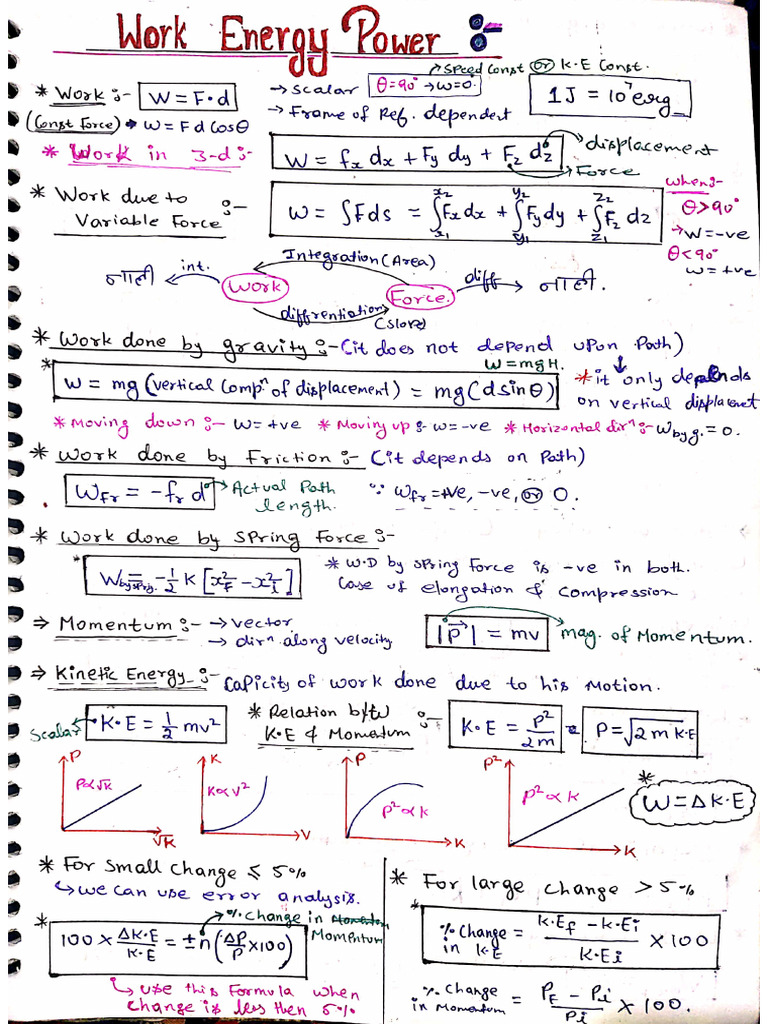 Work Energy Power :-
→ Speed Const or K.E Const.
* Work :- W = F·d → Scalar θ=90° → W=0. 1J = 10⁷ erg
(Const Force) → W = Fd Cosθ → Frame of Ref. dependent
* Work in 3-d :- W = fx dx + Fy dy + Fz dz → displacement
→ Force
* Work due to Variable Force :- W = ∫Fds = ∫Fx dx + ∫Fy dy + ∫Fz dz
x2 y2 z2
x1 y1 z1
when :-
θ>90°
→ W = -ve
θ<90°
W = +ve
Integration (Area)
नाली ← int. Work Force. diff → नाली.
diffrentiation
(Slope)
* Work done by gravity :- (it does not depend upon Path)
W = mgH.
* W = mg (vertical Compⁿ of displacement) = mg (d sinθ)
* it only depends
on vertical displacemet
* Moving down :- W = +ve * Moving up :- W = -ve * Horizontal dirⁿ :- W by g. = 0.
* Work done by Friction :- (it depends on Path)
WFr = -fr d → Actual Path length. ∵ Wfr = +ve, -ve, or 0.
* Work done by Spring Force :-
* W by sprg. = -1/2 K [x²f - x²i]
* W.D by spring Force is -ve in both.
Case of elongation & Compression
⇒ Momentum :- → vector
→ dirⁿ along velocity
|P→| = mv → mag. of Momentum.
⇒ Kinetic Energy :- Capicity of work done due to his Motion.
Scalar ← K·E = 1/2 mv² * Relation b/w K·E & Momentum :- K·E = P²/2m = P = √2mK·E
P P∝√K √K
K K∝V² V
P P²∝K K
P² P²∝K K
* W = ΔK·E
* For Small Change ≤ 5%
↳ we can use error analysis.
% Change in Momentum
* 100 × ΔK·E/K·E = ±n (ΔP/P ×100)
↳ use this Formula when
change is less then 5%
* For large change > 5%
* % Change in K·E = K·Ef - K·Ei / K·Ei × 100
% Change in Momentum = PE - Pi / Pi × 100.